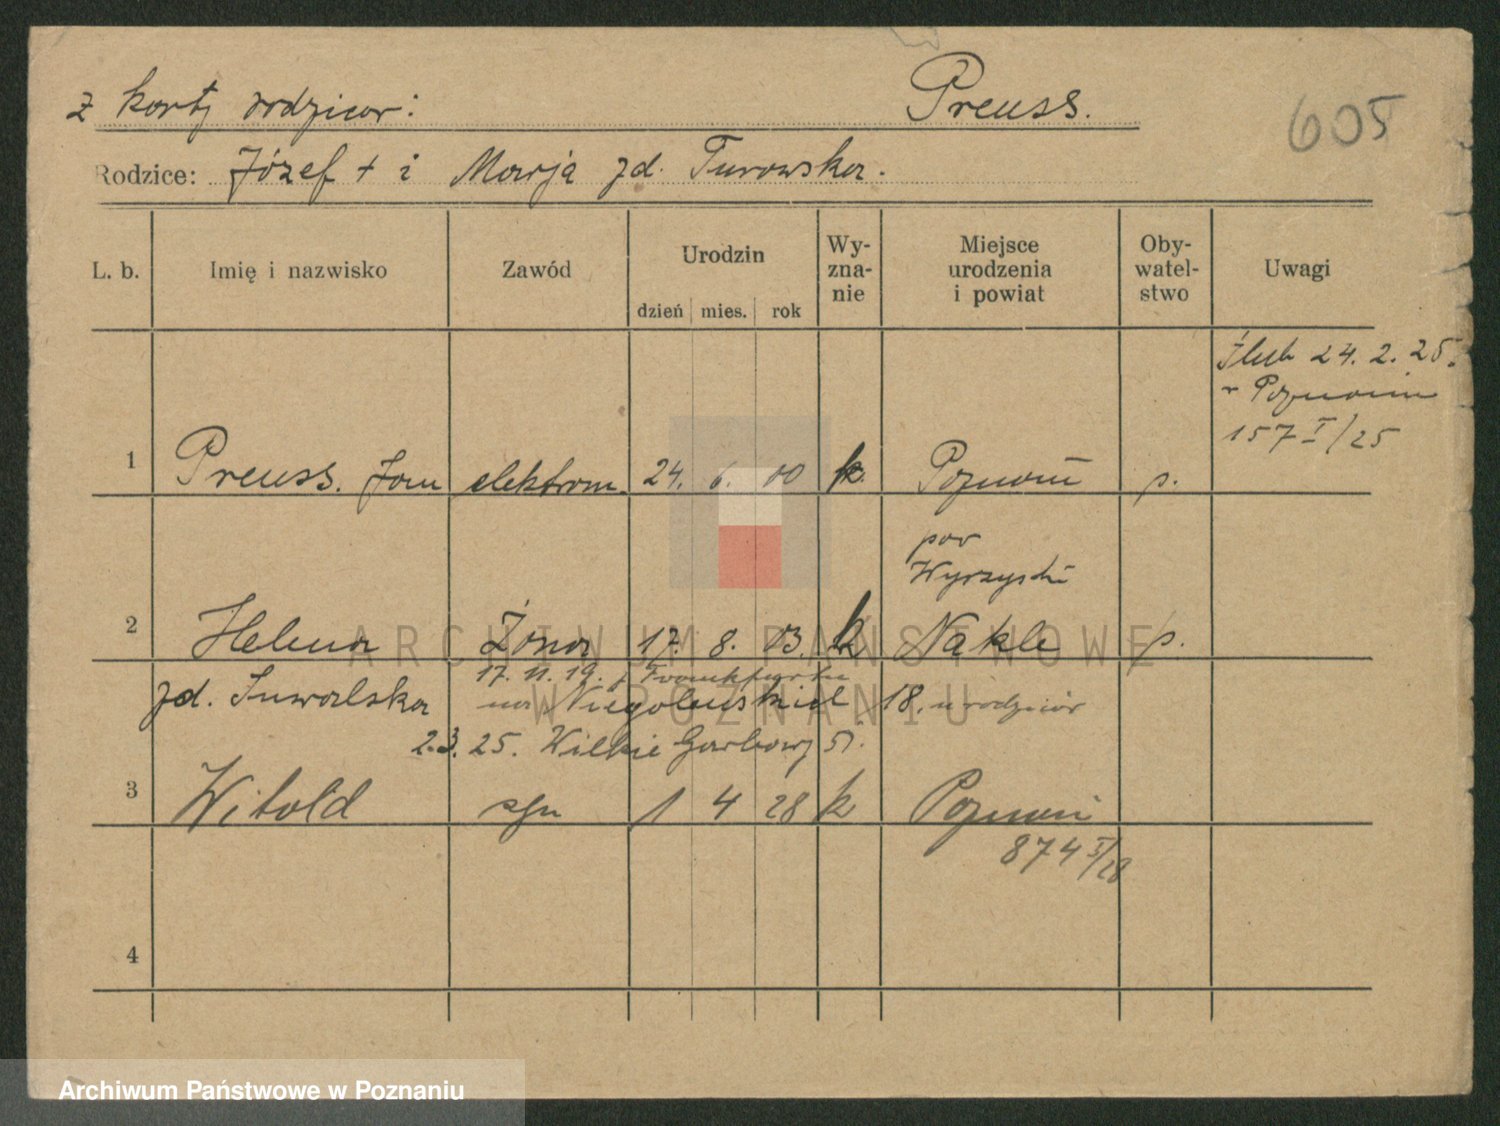 z karty rodziców: Preuss.
605
Rodzice: Józef + i Marja zd. Turowska.
L. b. Imię i nazwisko Zawód Urodzin dzień mies. rok Wy-zna-nie Miejsce urodzenia i powiat Oby-watel-stwo Uwagi
Ślub 24. 2. 25.
w Poznaniu
157 I/25
1 Preuss. Jan elektrom. 24. 6. 00 k. Poznań p.
pow
Wyrzyski
2 Helena Żona 17. 8. 03. k Nakle p.
17. 11. 19. z Frankfurtu
zd. Suwalska na Niegolewskich 18. u rodziców
2.3.25. Wielkie Garbary 51.
3 Witold syn 1 4 28 k Poznań
874 I/28
4
ARCHIWUM PAŃSTWOWE
W POZNANIU
Archiwum Państwowe w Poznaniu